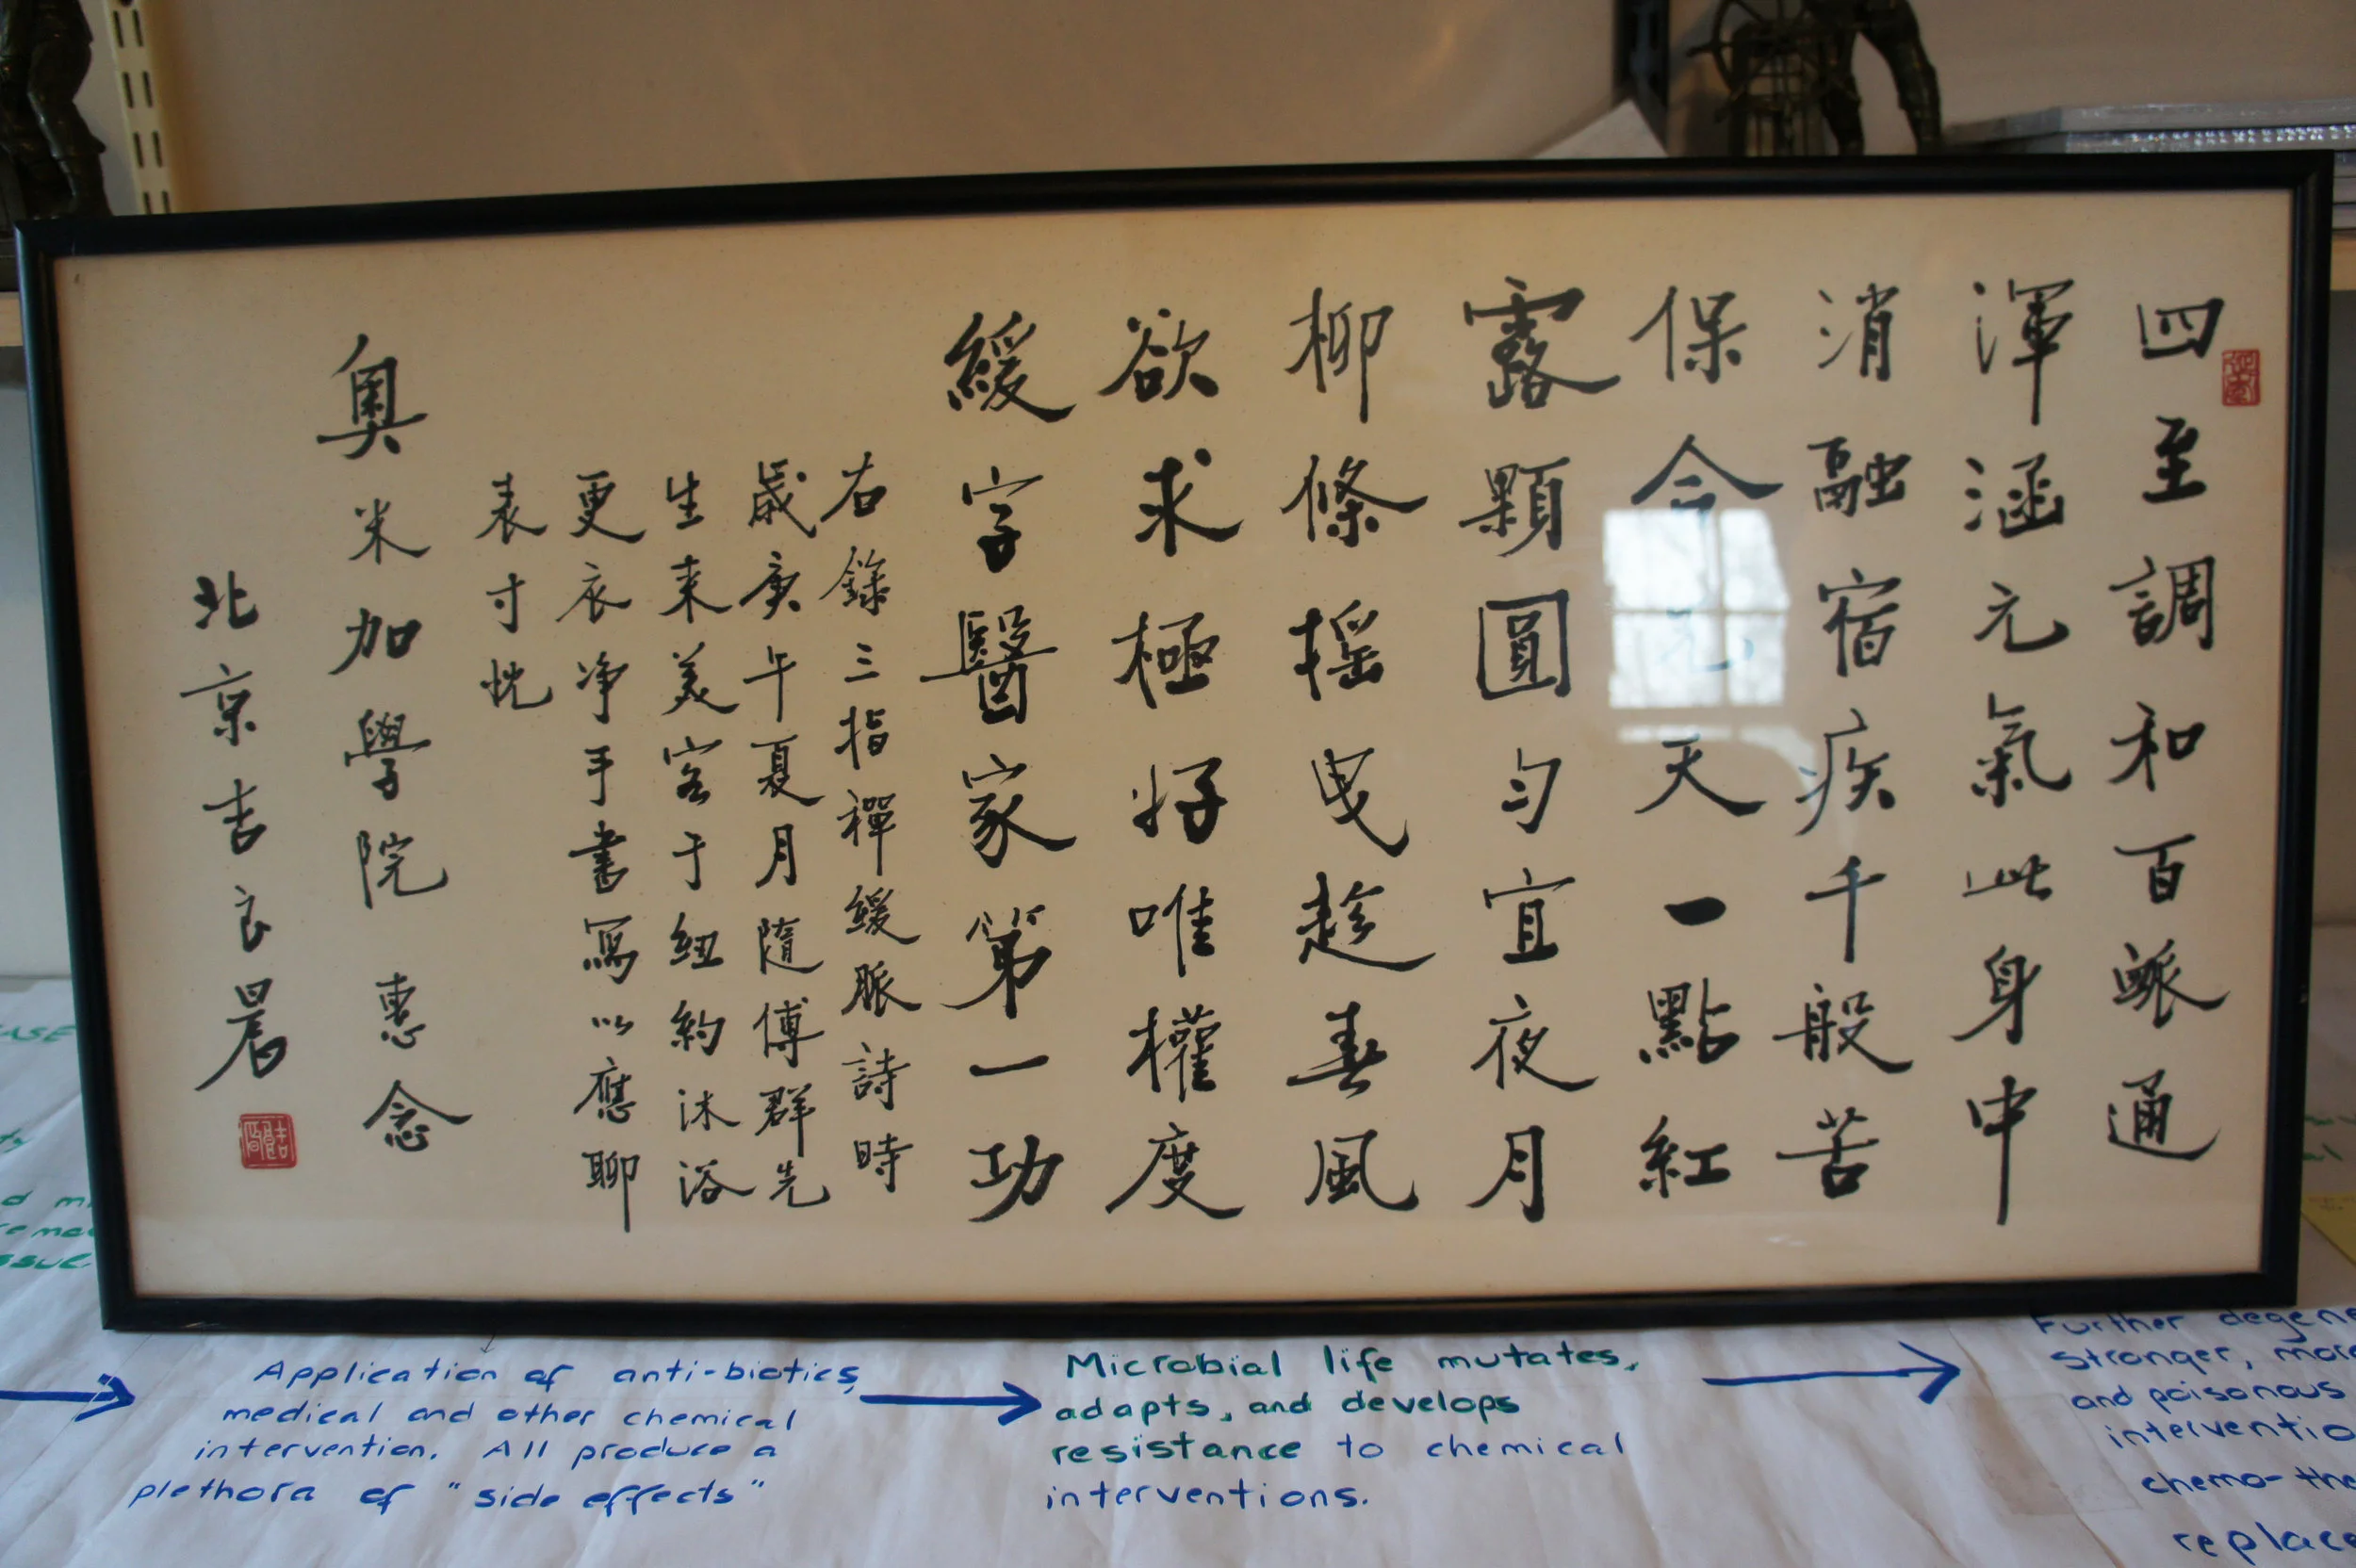 四至調和百脈通
渾涵元氣此身中
消融宿疾千般苦
保合元天一點紅
露顆圓勻宜夜月
柳條搖曳趁春風
欲求極好唯權度
緩字醫家第一功
右錄三指禪緩脈詩時
歲庚午夏月隨傅群先
生来美客于紐約沐浴
更衣净手書寫以應聊
表寸忱
奧米加學院 惠念
北京吉良晨
Application of anti-biotics,
medical and other chemical
intervention. All produce a
plethora of "side effects"
Microbial life mutates,
adapts, and develops
resistance to chemical
interventions.
Further degene
stronger, more
and poisonous
interventio
chemo-the
replace